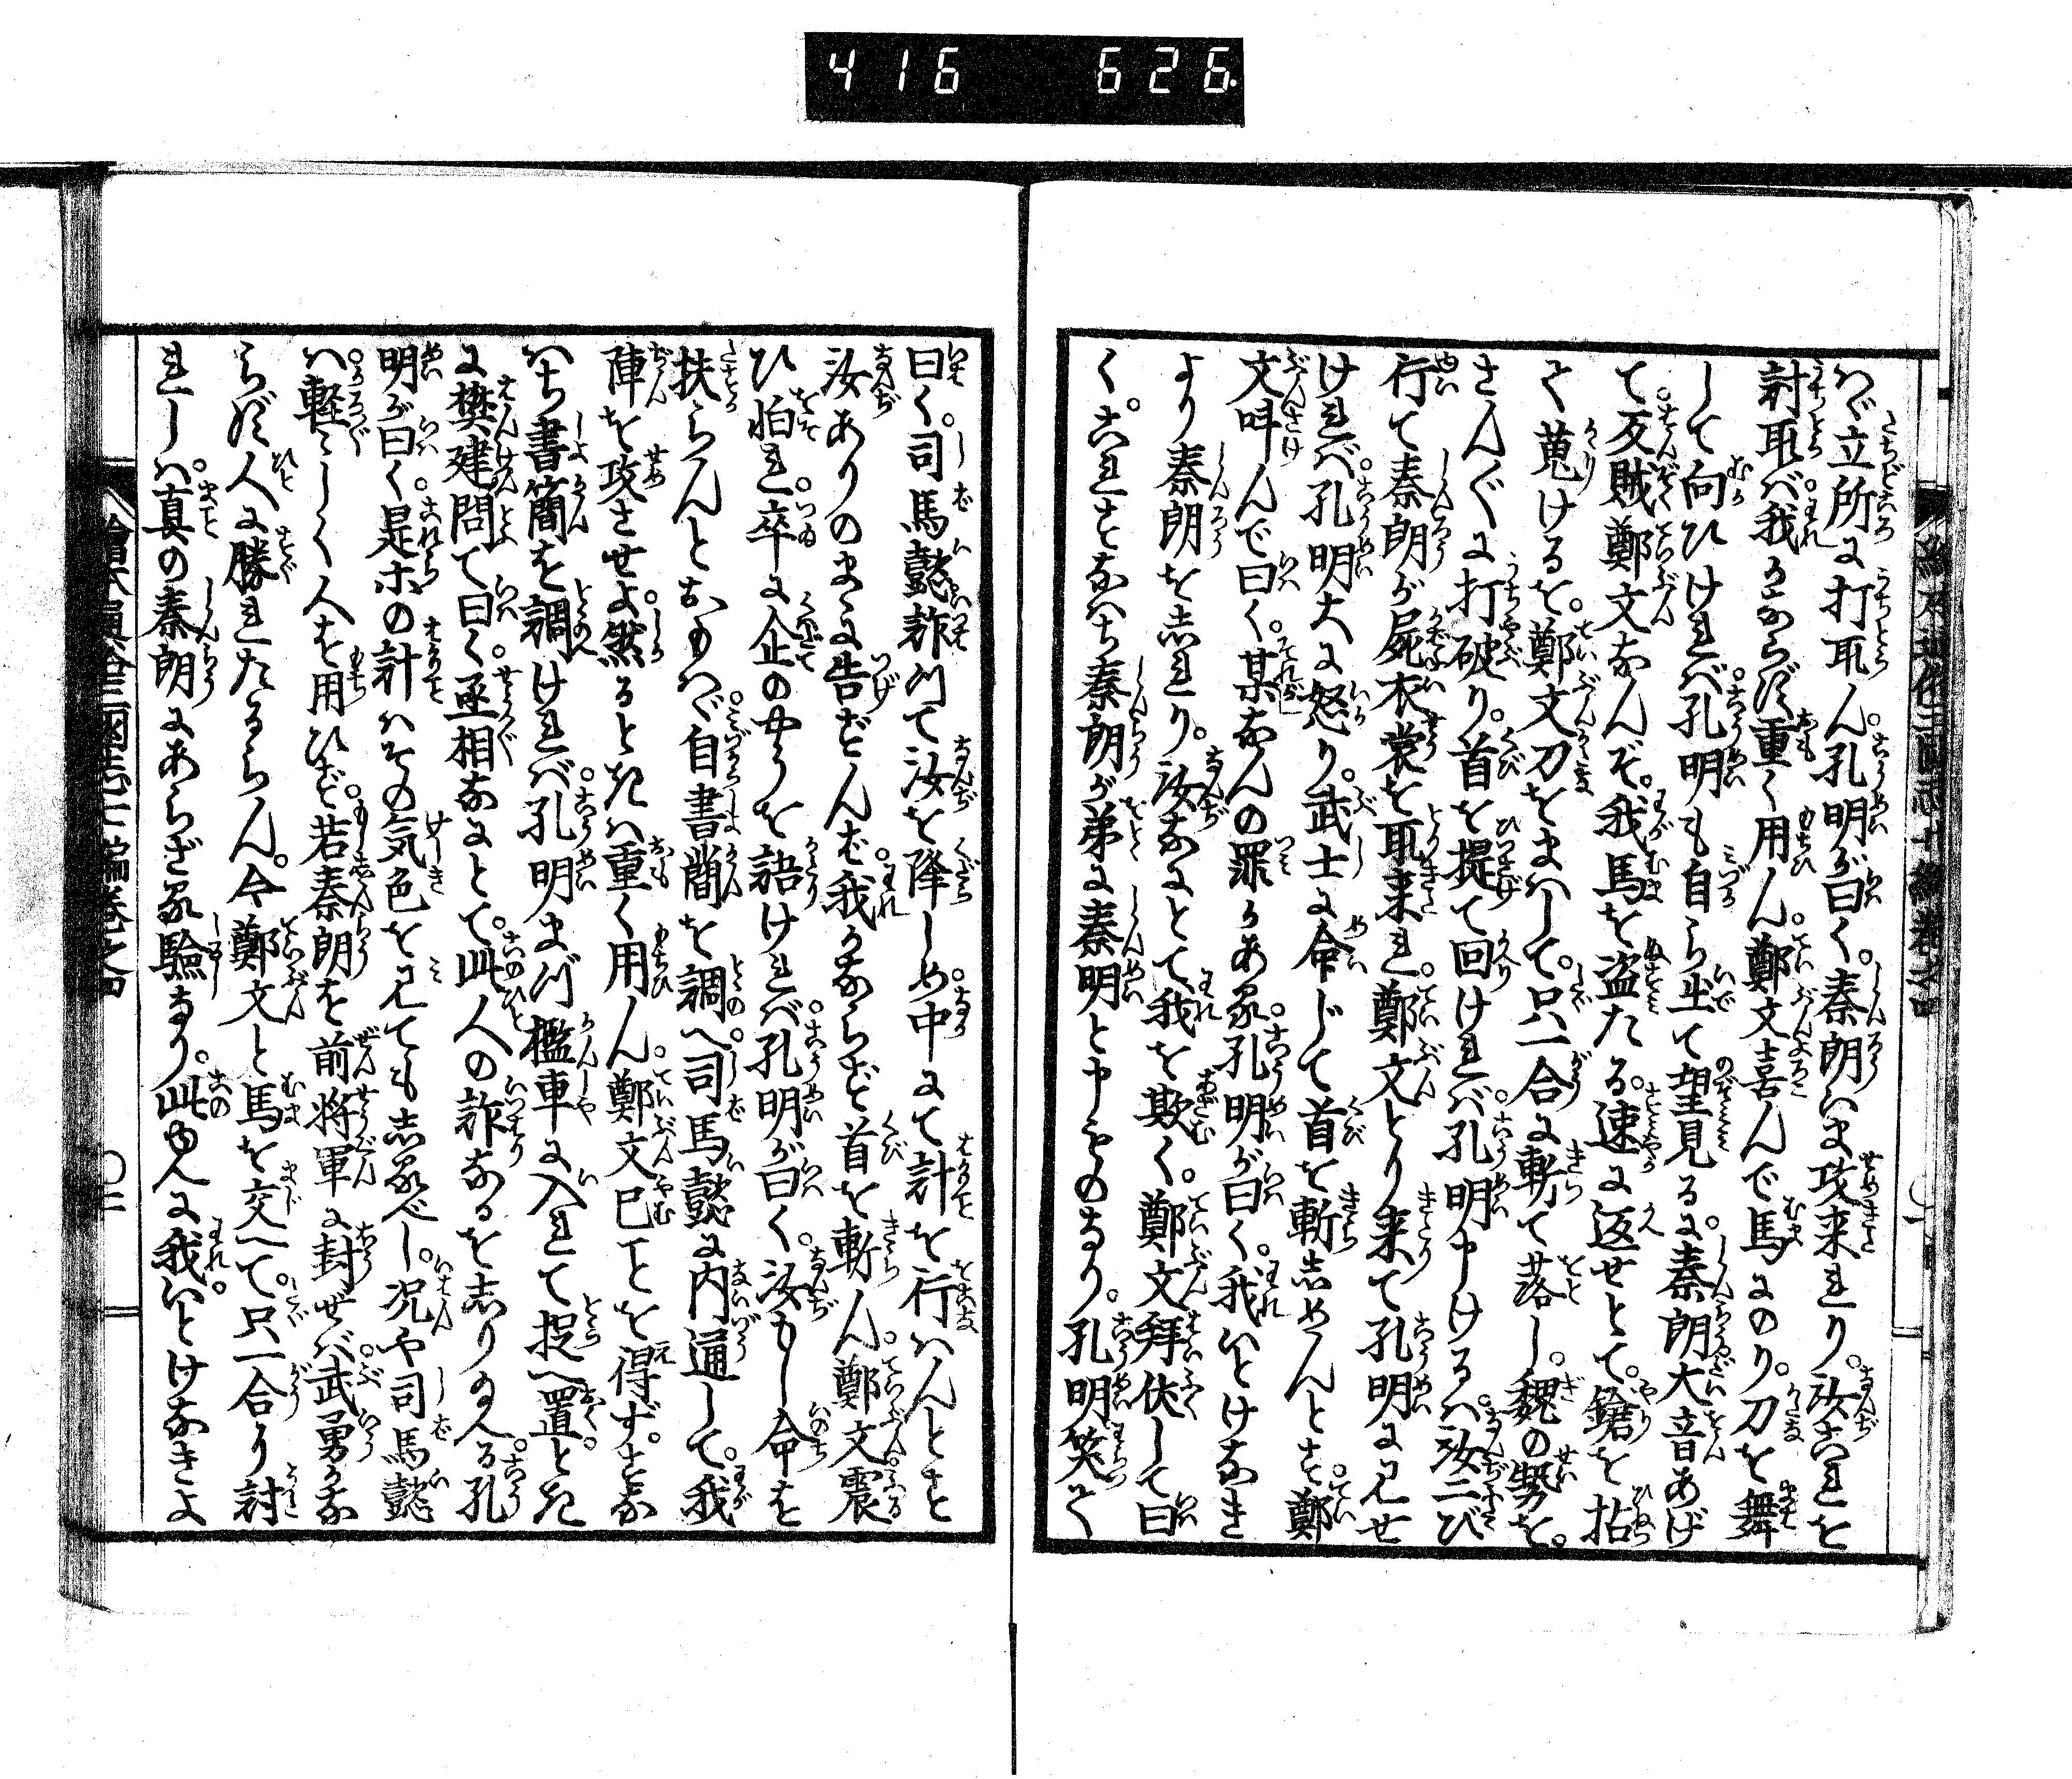 416 626
バ立所に打取ん。孔明が曰く。秦朗いま攻来れり。汝これを
討取バ我かならず重く用ん。鄭文喜んで馬にのり。刀を舞
して向ひけれバ。孔明も自ら出て望見るに。秦朗大音あげ
て反賊鄭文なんぞ。我馬を盗たる。速に返せとて。鎗を拈
て蒐けるを。鄭文刀をまハして。只一合に斬て落し。魏の勢を。
さんぐに打破り。首を提て回けれバ。孔明申けるハ。汝二び
行て秦朗が屍衣裳を取来れ。鄭文とり来て孔明に見せ
けれバ。孔明大に怒り。武士に命じて首を斬しめんとす。鄭
文呌んで曰く。某なんの罪かある。孔明が曰く。我いとけなき
より秦朗をしれり。汝なにとて我を欺く。鄭文拜伏して曰
く。これすなハち秦朗が弟に秦明と申ものなり。孔明笑て
曰く。司馬懿詐りて汝を降しめ。中にて計を行ハんとす
汝ありのまゝに告ずんば。我かならず首を斬ん。鄭文震
ひ怕れ。卒に企のやうを語けれバ。孔明が曰く。汝もし命を
扶らんとおもハゞ。自書簡を調へ。司馬懿に内通して。我
陣を攻させよ。然るときハ重く用ん。鄭文已ことを得ず。すな
ハち書簡を調けれバ。孔明まづ檻車に入れて捉へ置。とき
に樊建問て曰く。丞相なにとて。此人の詐なるをしり給へる。孔
明が曰く。是ホの計ハその気色を見てもしるべし。况や司馬懿
ハ。軽〻しく人を用ひず。若秦朗を前将軍に封ぜバ。武勇かな
らず人に勝れたるらん。今鄭文と馬を交へて。只一合に討
れしハ。真の秦朗にあらざる驗なり。此ゆへに我。いとけなきよ
繪本通俗三國志七編卷之四